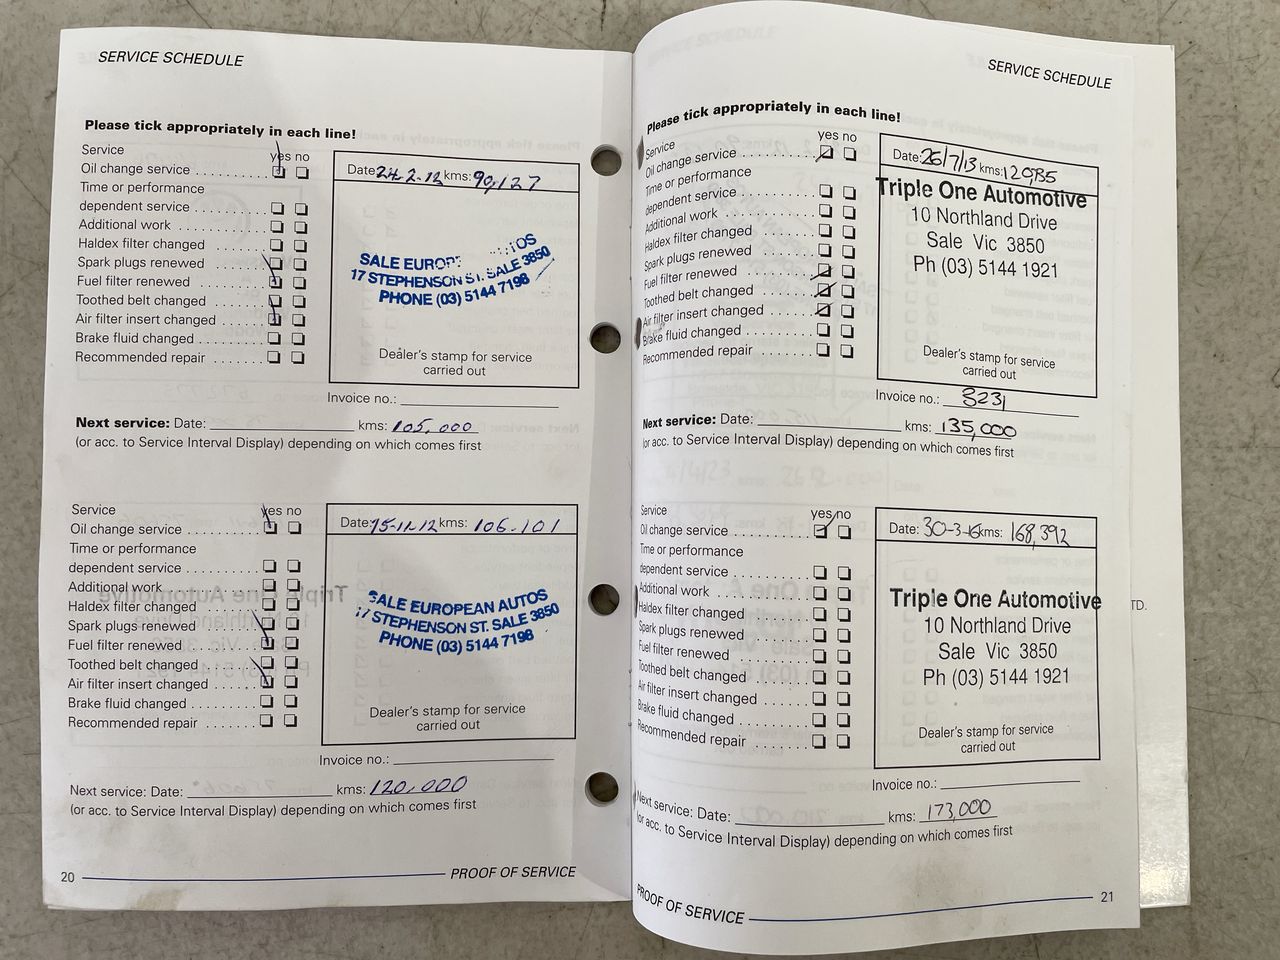 SERVICE SCHEDULE
Please tick appropriately in each line!
Service
yes no
Oil change service
Time or performance
dependent service
Additional work
Haldex filter changed
Spark plugs renewed
Fuel filter renewed
Toothed belt changed
Air filter insert changed
Brake fluid changed
Recommended repair
Date: 24.2.12 kms: 90,127
SALE EUROP
17 STEPHENSON ST. SALE 3850
PHONE (03) 5144 7198
Dealer's stamp for service
carried out
Invoice no.:
Next service: Date: kms: 105,000
(or acc. to Service Interval Display) depending on which comes first
Service
yes no
Oil change service
Time or performance
dependent service
Additional work
Haldex filter changed
Spark plugs renewed
Fuel filter renewed
Toothed belt changed
Air filter insert changed
Brake fluid changed
Recommended repair
Date: 15-11-12 kms: 106-101
SALE EUROPEAN AUTOS
17 STEPHENSON ST. SALE 3850
PHONE (03) 5144 7198
Dealer's stamp for service
carried out
Invoice no.:
Next service: Date: kms: 120,000
(or acc. to Service Interval Display) depending on which comes first
20 PROOF OF SERVICE
SERVICE SCHEDULE
Please tick appropriately in each line!
Service
yes no
Oil change service
Time or performance
dependent service
Additional work
Haldex filter changed
Spark plugs renewed
Fuel filter renewed
Toothed belt changed
Air filter insert changed
Brake fluid changed
Recommended repair
Date: 26/7/13 kms:
Triple One Automotive
10 Northland Drive
Sale Vic 3850
Ph (03) 5144 1921
Dealer's stamp for service
carried out
Invoice no.: 3231
Next service: Date: kms: 135,000
(or acc. to Service Interval Display) depending on which comes first
Service
yes no
Oil change service
Time or performance
dependent service
Additional work
Haldex filter changed
Spark plugs renewed
Fuel filter renewed
Toothed belt changed
Air filter insert changed
Brake fluid changed
Recommended repair
Date: 30-3-16 kms: 168,392
Triple One Automotive
10 Northland Drive
Sale Vic 3850
Ph (03) 5144 1921
Dealer's stamp for service
carried out
Invoice no.:
Next service: Date: kms: 173,000
(or acc. to Service Interval Display) depending on which comes first
PROOF OF SERVICE 21
TD.